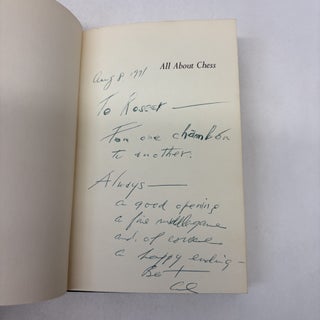 Aug 8 1971
All About Chess
To Kosser —
From one chambón
to another.
Always —
a good opening
a fine middlegame
and, of course
a happy ending —
Be
Al